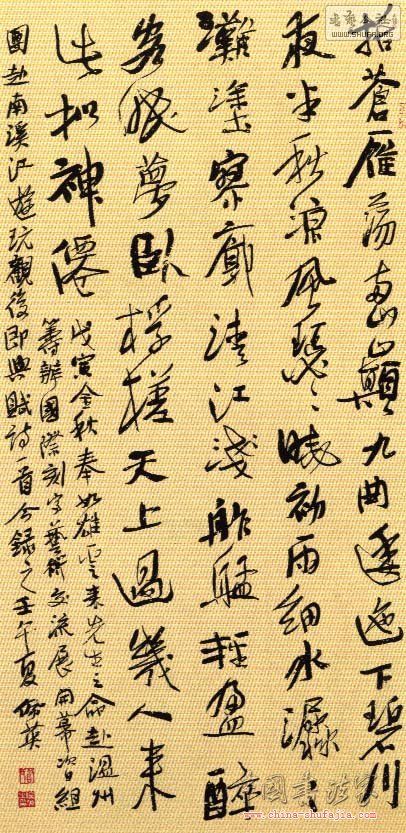 括蒼雁蕩萬山巔九曲逶迤下碧川
夜半秋涼風瑟々曉初雨細水潺々
灘深寥廓清江淺舴艋輕盈醉
客眠夢臥桴槎天上過幾人來
此似神僊
戊寅金秋奉如雄雲來先生之命赴溫州
籌辦國際刻字藝術交流展開幕翌日組
團赴南溪江遊玩觀後即興賦詩一首今錄之壬午夏
WWW.SHUFA.ORG
www.china-shufajia.com